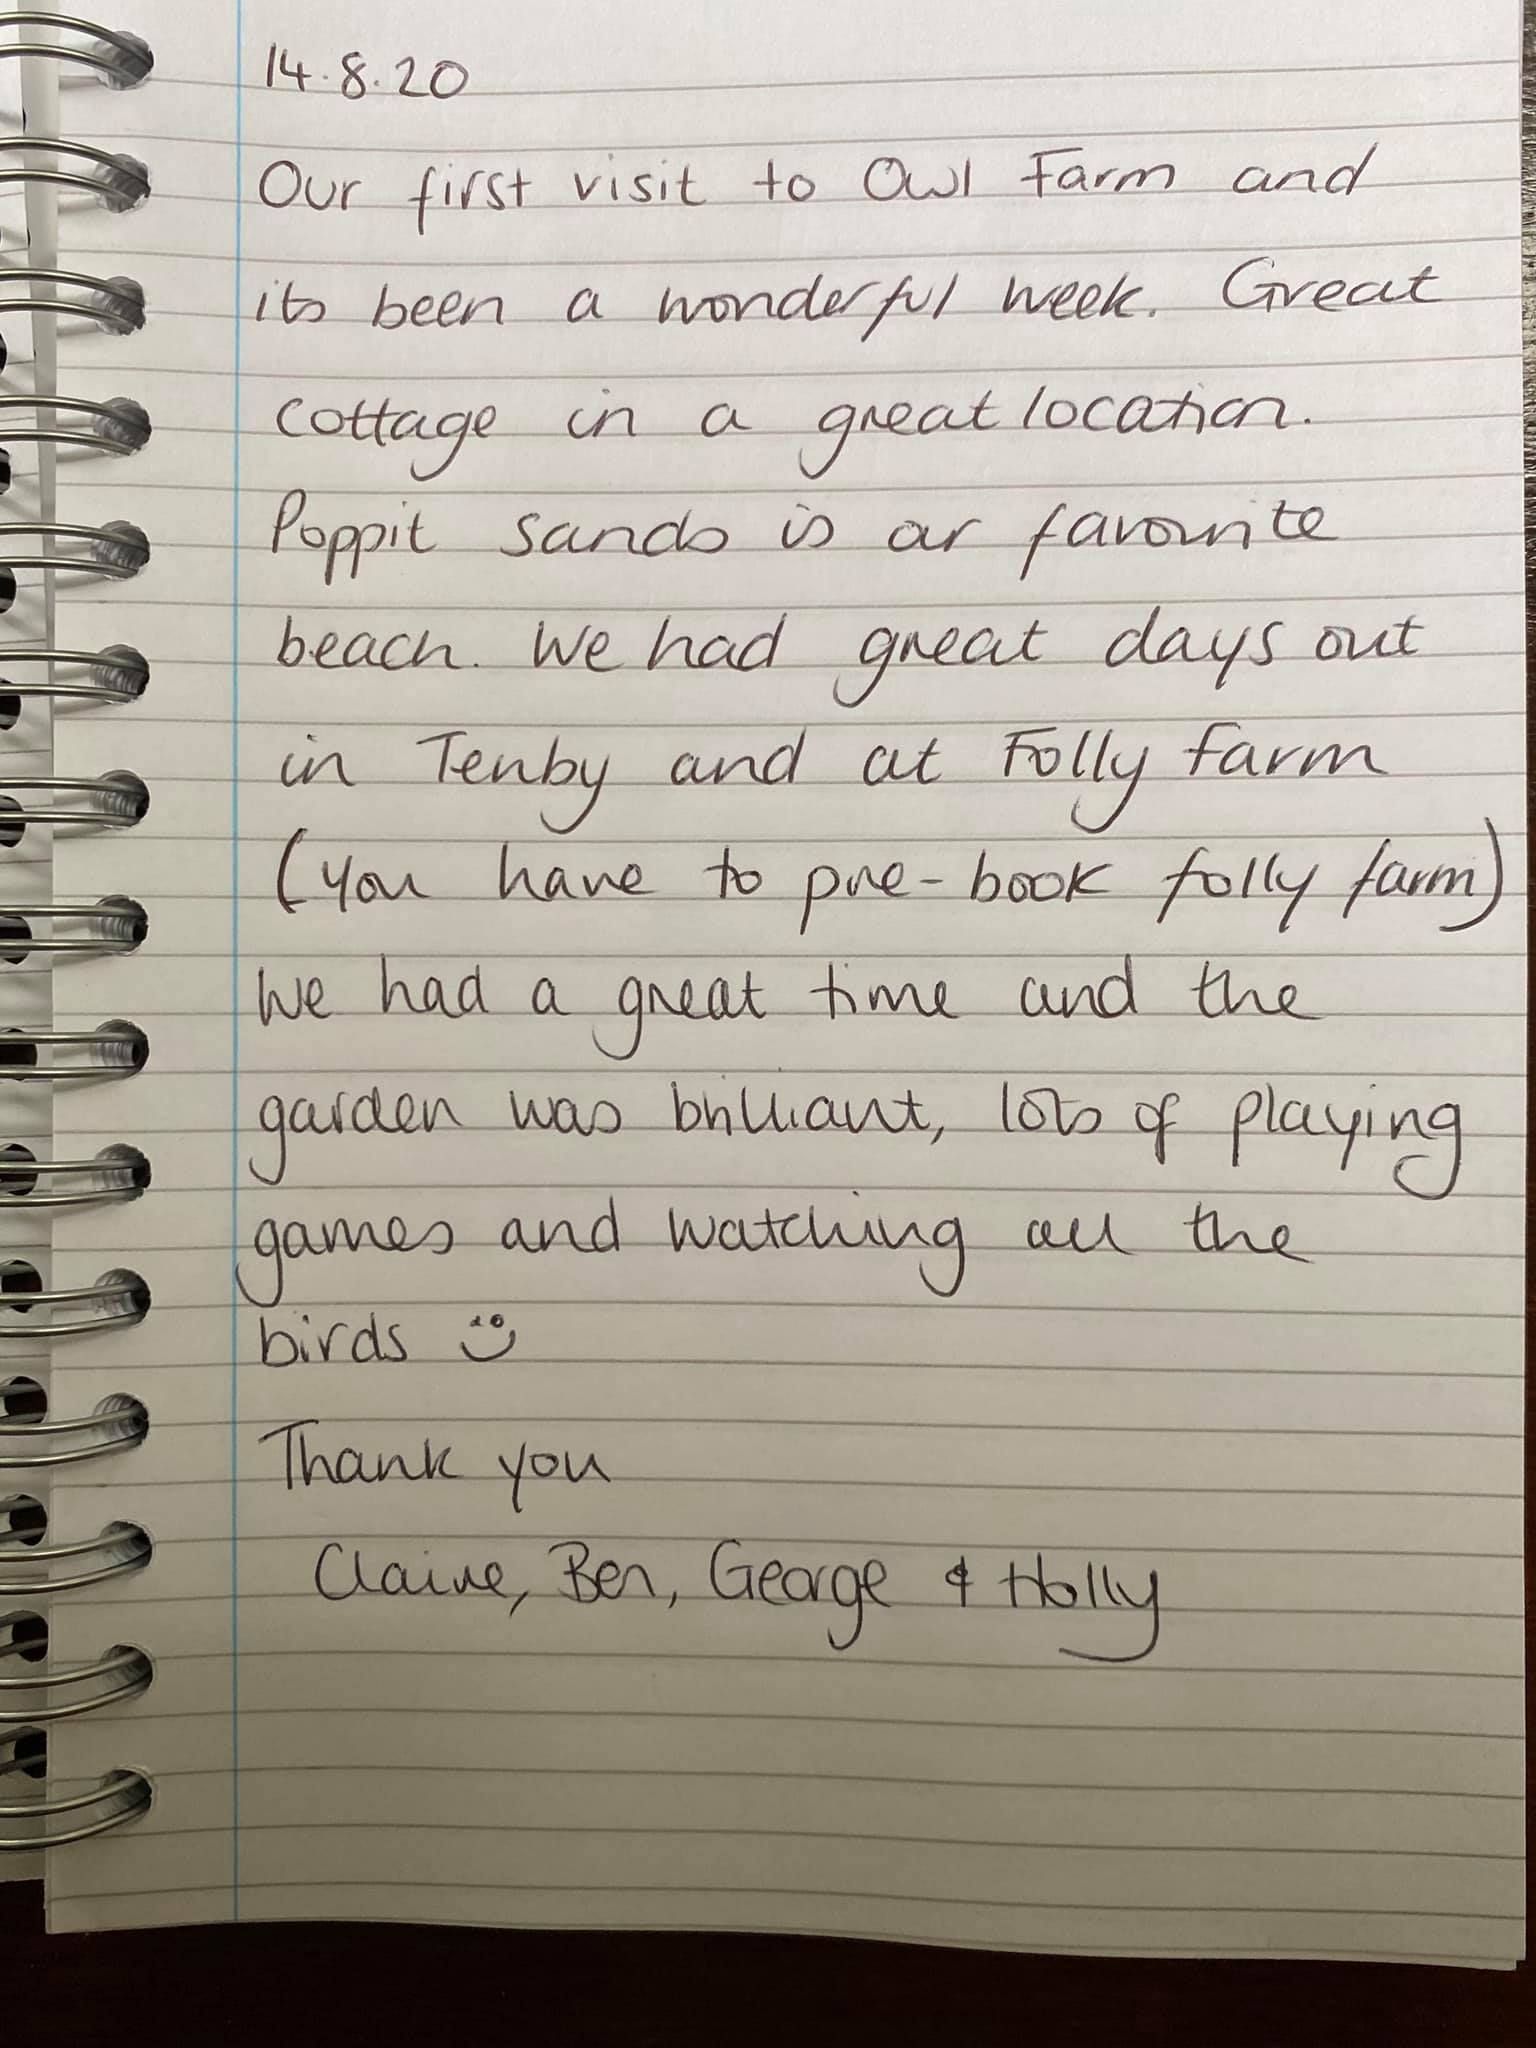 14.8.20
Our first visit to Owl Farm and
its been a wonderful week. Great
cottage in a great location.
Poppit sands is our favourite
beach. We had great days out
in Tenby and at Folly farm
(you have to pre-book folly farm)
We had a great time and the
garden was brilliant, lots of playing
games and watching all the
birds
Thank you
Claire, Ben, George & Holly